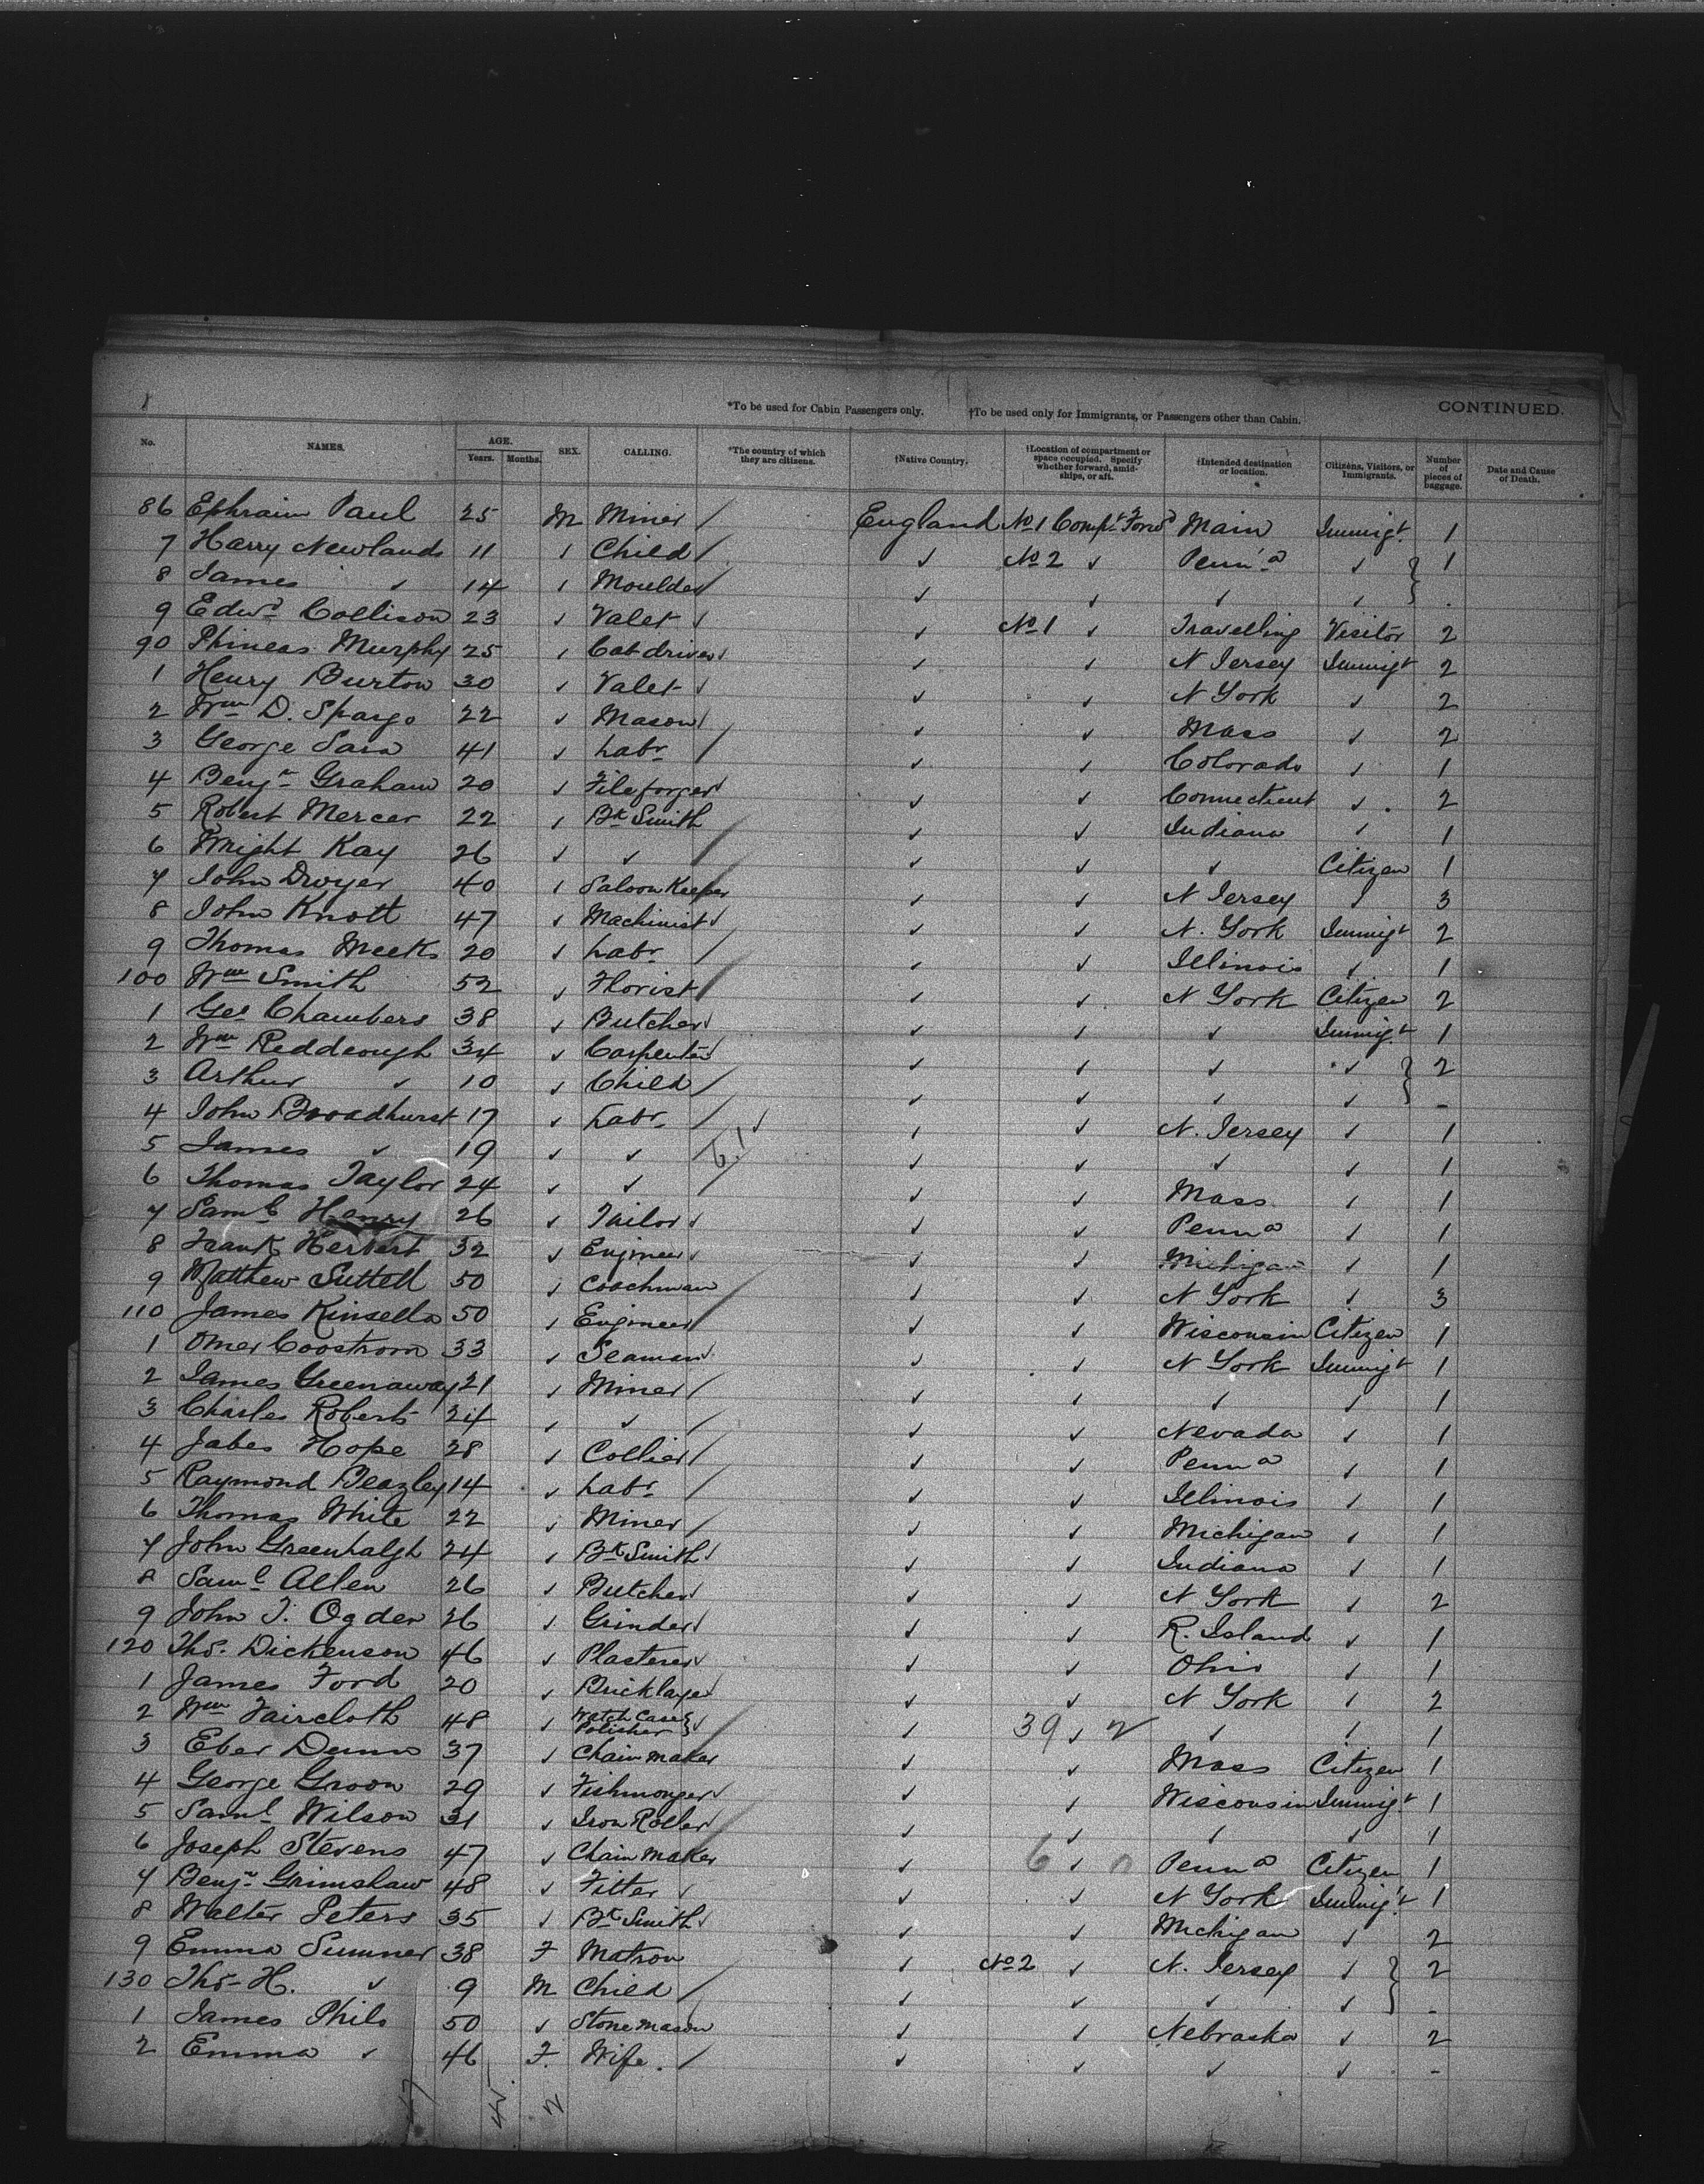 *To be used for Cabin Passengers only. †To be used only for Immigrants, or Passengers other than Cabin. CONTINUED.
No. NAMES. AGE. Years. Months. SEX. CALLING. *The country of which they are citizens. †Native Country. †Location of compartment or space occupied. Specify whether forward, amid-ships, or aft. †Intended destination or location. Citizens, Visitors, or Immigrants. Number of pieces of baggage. Date and Cause of Death.
86 Ephraim Paul 25 M Miner / England No 1 Compt Forwd Main Immigt 1
7 Harry Newlands 11 ✓ Child / ✓ No 2 ✓ Penn'a ✓ } 1
8 James ✓ 14 ✓ Moulder / ✓ ✓ ✓ ✓ }
9 Edwd Collison 23 ✓ Valet ✓ ✓ No 1 ✓ Travelling Visitor 2
90 Phineas Murphy 25 ✓ Cab driver ✓ ✓ ✓ N Jersey Immigt 2
1 Henry Burton 30 ✓ Valet ✓ ✓ ✓ N York ✓ 2
2 Wm D. Spargo 22 ✓ Mason / ✓ ✓ Mass ✓ 2
3 George Sara 41 ✓ Labr / ✓ ✓ Colorado ✓ 1
4 Benjn Graham 20 ✓ File forger ✓ ✓ ✓ Connecticut ✓ 2
5 Robert Mercer 22 ✓ Bk Smith ✓ ✓ Indiana ✓ 1
6 Wright Kay 26 ✓ ✓ / ✓ ✓ ✓ Citizen 1
7 John Dwyer 40 ✓ Saloon Keeper ✓ ✓ N Jersey ✓ 3
8 John Knott 47 ✓ Machinist ✓ ✓ ✓ N. York Immigt 2
9 Thomas Meeks 20 ✓ Labr / ✓ ✓ Illinois ✓ 1
100 Wm Smith 52 ✓ Florist / ✓ ✓ N York Citizen 2
1 Geo Chambers 38 ✓ Butcher ✓ ✓ ✓ ✓ Immigt 1
2 Wm Reddeough 34 ✓ Carpenter ✓ ✓ ✓ ✓ ✓ } 2
3 Arthur ✓ 10 ✓ Child / ✓ ✓ ✓ ✓ } -
4 John Broadhurst 17 ✓ Labr / ✓ ✓ N. Jersey ✓ 1
5 James ✓ 19 ✓ ✓ / ✓ ✓ ✓ ✓ 1
6 Thomas Taylor 24 ✓ ✓ / ✓ ✓ Mass ✓ 1
7 Saml Henry 26 ✓ Tailor ✓ ✓ ✓ Penna ✓ 1
8 Frank Herbert 32 ✓ Engineer ✓ ✓ ✓ Michigan ✓ 1
9 Matthew Suttell 50 ✓ Coachman ✓ ✓ N York ✓ 3
110 James Kinsella 50 ✓ Engineer / ✓ ✓ Wisconsin Citizen 1
1 Omer Coostrom 33 ✓ Seaman ✓ ✓ ✓ N York Immigt 1
2 James Greenaway 21 ✓ Miner / ✓ ✓ ✓ ✓ 1
3 Charles Roberts 24 ✓ ✓ / ✓ ✓ Nevada ✓ 1
4 Jabes Hope 28 ✓ Collier / ✓ ✓ Penna ✓ 1
5 Raymond Beazley 14 ✓ Labr / ✓ ✓ Illinois ✓ 1
6 Thomas White 22 ✓ Miner / ✓ ✓ Michigan ✓ 1
7 John Greenhalgh 24 ✓ Bk Smith ✓ ✓ ✓ Indiana ✓ 1
8 Saml Allen 26 ✓ Butcher ✓ ✓ ✓ N York ✓ 2
9 John T. Ogden 26 ✓ Grinder ✓ ✓ ✓ R. Island ✓ 1
120 Thos. Dickenson 46 ✓ Plasterer ✓ ✓ ✓ Ohio ✓ 1
1 James Ford 20 ✓ Bricklayer ✓ ✓ ✓ N York ✓ 2
2 Wm Faircloth 48 ✓ Watch Case Polisher } ✓ ✓ 39 ✓ 2 ✓ ✓ 1
3 Eber Dunn 37 ✓ Chain maker ✓ ✓ Mass Citizen 1
4 George Groom 29 ✓ Fishmonger ✓ ✓ ✓ Wisconsin Immigt 1
5 Saml Wilson 31 ✓ Iron Roller ✓ ✓ ✓ ✓ ✓ 1
6 Joseph Stevens 47 ✓ Chain maker ✓ 6 ✓ 0 Penna Citizen 1
7 Benjn Grimshaw 48 ✓ Fitter ✓ ✓ ✓ N York Immigt 1
8 Walter Peters 35 ✓ Bk Smith ✓ ✓ ✓ Michigan ✓ 2
9 Emma Sumner 38 F Matron ✓ No 2 ✓ N. Jersey ✓ } 2
130 Thos H. ✓ 9 M Child / ✓ ✓ ✓ ✓ } -
1 James Phils 50 ✓ Stone mason ✓ ✓ Nebraska ✓ 2
2 Emma ✓ 46 F. Wife. / ✓ ✓ ✓ ✓ -